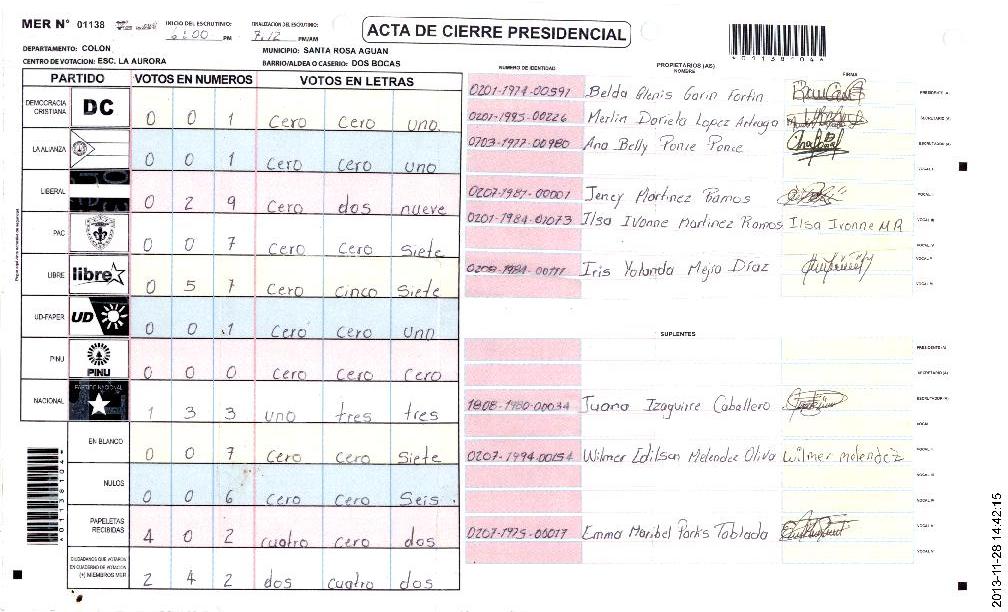 MER N° 01138
INICIO DEL ESCRUTINIO:
:00 PM
FINALIZACION DEL ESCRUTINIO:
7:12 PM/AM
ACTA DE CIERRE PRESIDENCIAL
DEPARTAMENTO: COLON
MUNICIPIO: SANTA ROSA AGUAN
CENTRO DE VOTACION: ESC. LA AURORA
BARRIO/ALDEA O CASERIO: DOS BOCAS
PARTIDO VOTOS EN NUMEROS VOTOS EN LETRAS
DEMOCRACIA CRISTIANA DC 0 0 1 Cero Cero uno.
LA ALIANZA 0 0 1 Cero Cero uno
LIBERAL 0 2 9 Cero dos nueve
PAC 0 0 7 Cero Cero Siete
LIBRE libre 0 5 7 Cero Cinco Siete
UD-FAPER UD 0 0 1 Cero Cero uno
PINU PINU 0 0 0 Cero Cero Cero
NACIONAL PARTIDO NACIONAL 1 3 3 uno tres tres
EN BLANCO 0 0 7 Cero Cero Siete
NULOS 0 0 6 Cero Cero Seis.
PAPELETAS RECIBIDAS 4 0 2 cuatro cero dos
CIUDADANOS QUE VOTARON EN CUADERNO DE VOTACION (+) MIEMBROS MER 2 4 2 dos cuatro dos
NUMERO DE IDENTIDAD
PROPIETARIOS (AS)
NOMBRE
FIRMA
0201-1974-00591 Belda Glenis Garin Fortin PRESIDENTE (A)
0201-1995-00226 Merlin Dariela Lopez Arteaga SECRETARIO (A)
0703-1977-00980 Ana Belly Ponce Ponce ESCRUTADOR (A)
VOCAL I
0207-1987-00001 Jency Martinez Ramos VOCAL II
0201-1984-01073 Ilsa Ivonne Martinez Ramos Ilsa Ivonne M R VOCAL III
VOCAL IV
Iris Yolanda Mejia Díaz VOCAL V
VOCAL VI
SUPLENTES
PRESIDENTE (A)
SECRETARIO (A)
1808-1980-00034 Juana Izaguirre Caballero ESCRUTADOR (A)
VOCAL I
0207-1994-00154 Wilmer Edilson Melendez Oliva Wilmer melendez VOCAL II
VOCAL III
VOCAL IV
0207-1975-00077 Emma Maribel Parks Tablada VOCAL V
VOCAL VI
2013-11-28 14:42:15